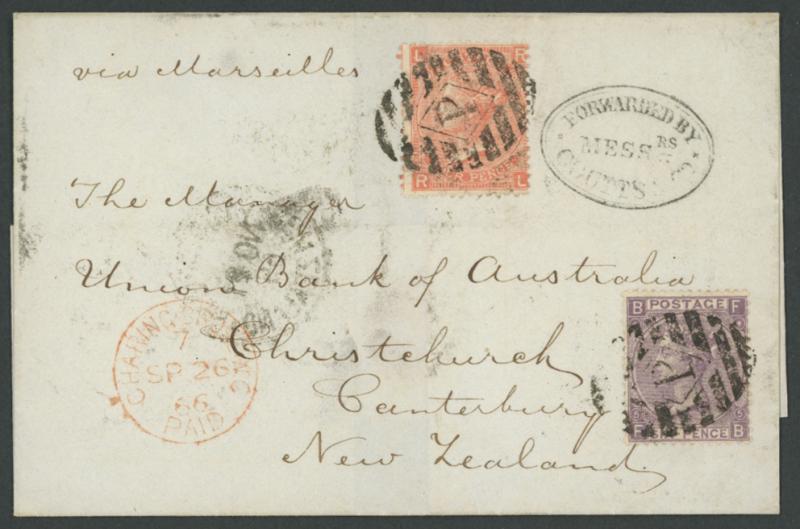 via Marseilles
L R
P
R L
FOUR PENCE
FORWARDED BY
MESSRS
COUTTS & CO
The Manager
Union Bank of Australia
Christchurch
Canterbury
New Zealand
CHARING CROSS WC
7
SP 26
66
PAID
NOV
B POSTAGE F
P
F PENCE B